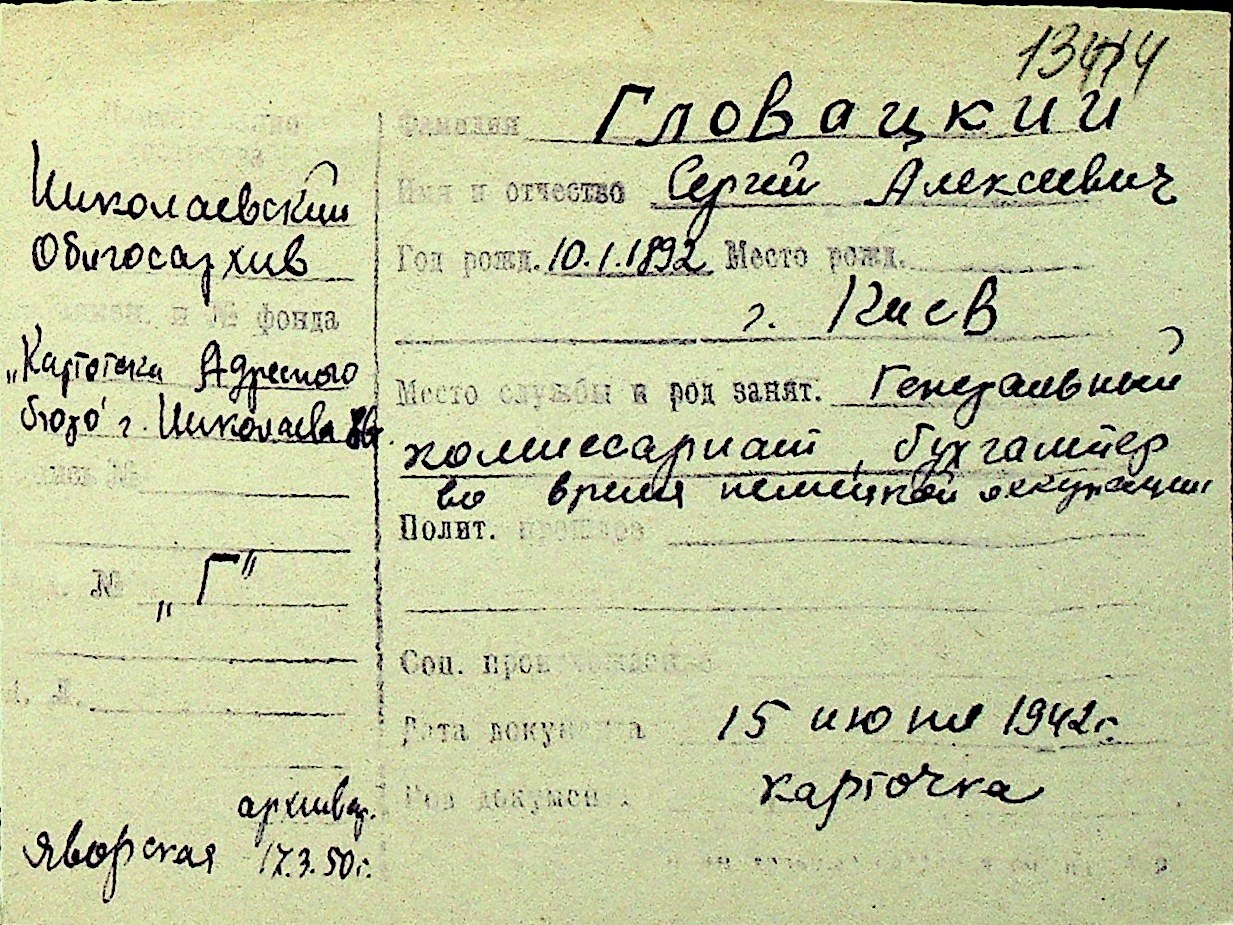 13414
Фамилия Гловацкий
Имя и отчество Сергей Алексеевич
Год рожд. 10.1.1892 Место рожд.
г. Киев
Место службы и род занят. Генеральный
комиссариат, бухгалтер
во время немецкой оккупации
Полит.
Соц. происхождение
Дата документа 15 июня 1942 г.
Род документа карточка
Николаевский
Облгосархив
и № фонда
„Картотека Адресного
бюро" г. Николаева
№
№ „Г"
архивар.
Яворская 17.3.50 г.